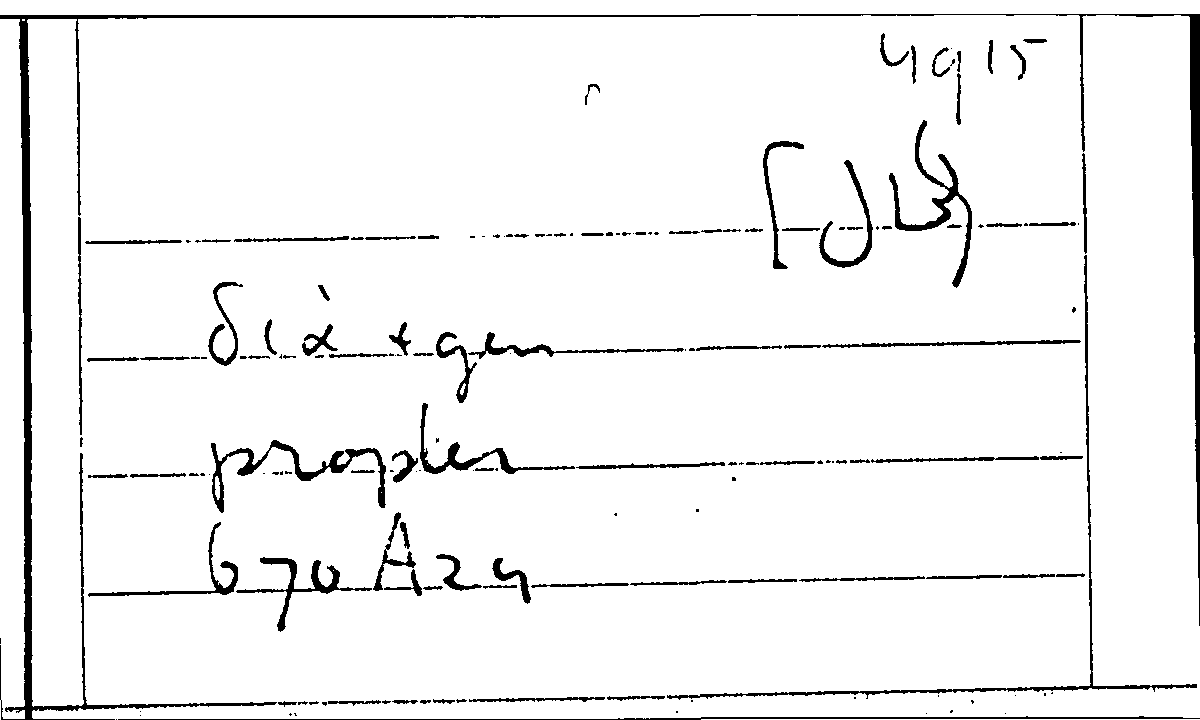 4915
διὰ + gen
propter
670A24